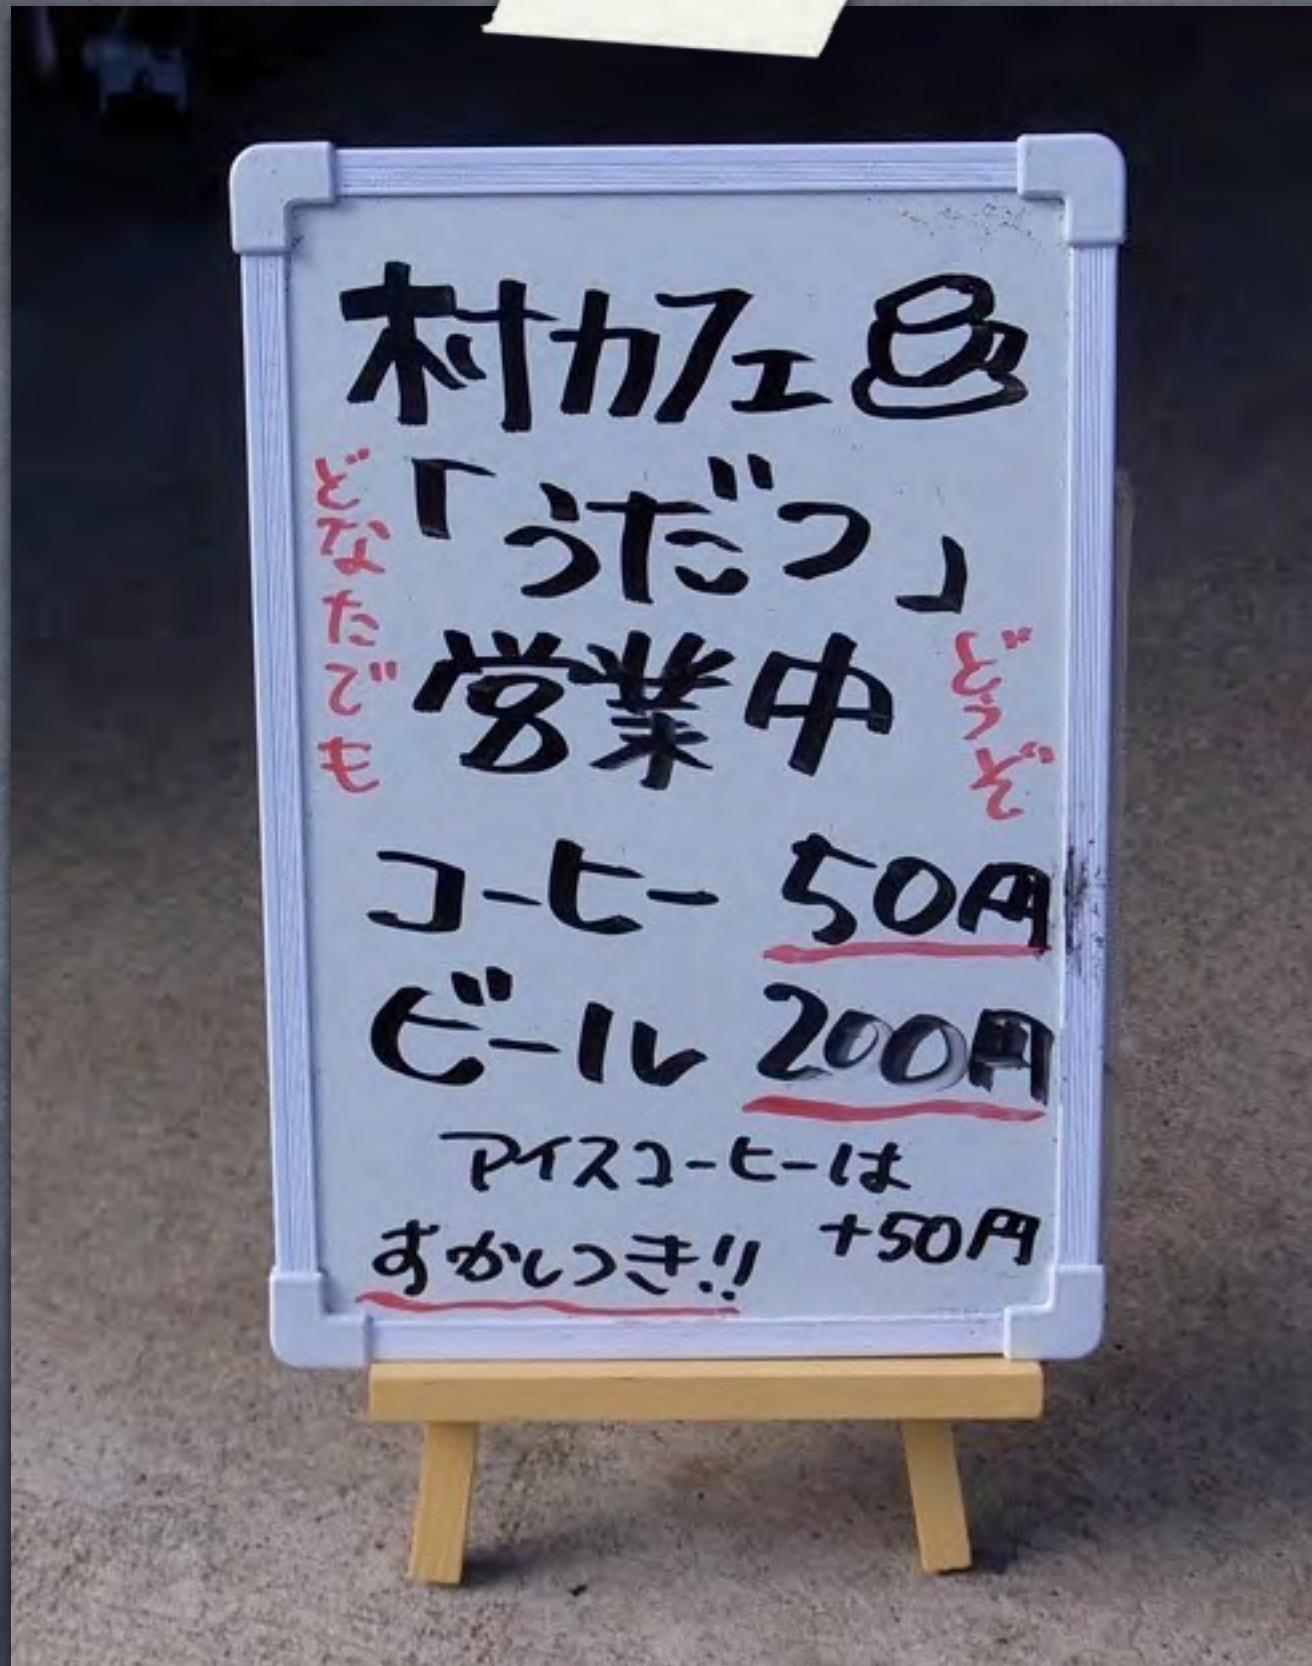 村カフェ
「うだつ」
営業中
どなたでも
どうぞ
コーヒー 50円
ビール 200円
アイスコーヒーは
+50円
すかしつき!!